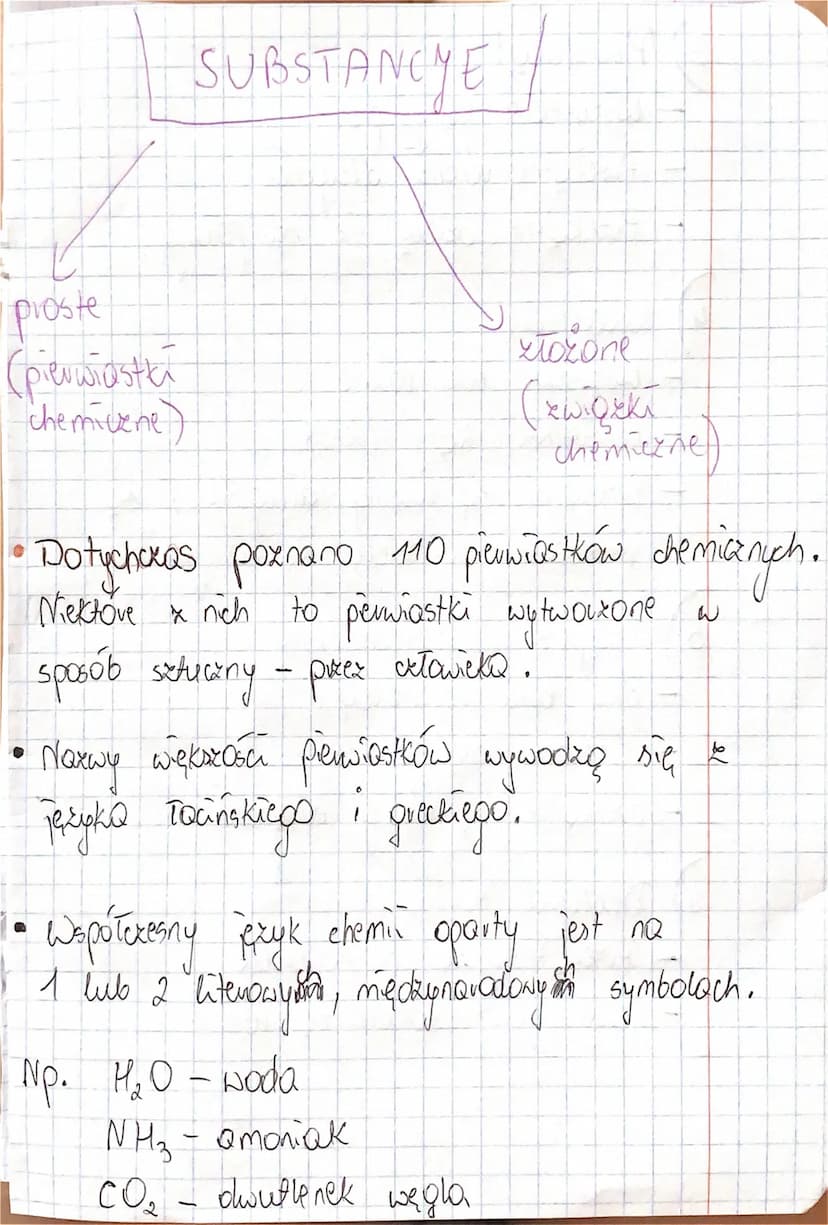 SUBSTANCJE
proste
(pierwiastki
chemiczne)
złożone
(związki
chemiczne)
• Dotychczas poznano 110 pierwiastków chemicznych.
Niektóre z nich to pierwiastki wytworzone w
sposób sztuczny - przez człowieka.
• Nazwy większości pierwiastków wywodzą się z
języka łacińskiego i greckiego.
• Współczesny język chemii oparty jest na
1 lub 2 literowych, międzynarodowych symbolach.
Np. H₂O - woda
NH₃ - amoniak
CO₂ - dwutlenek węgla